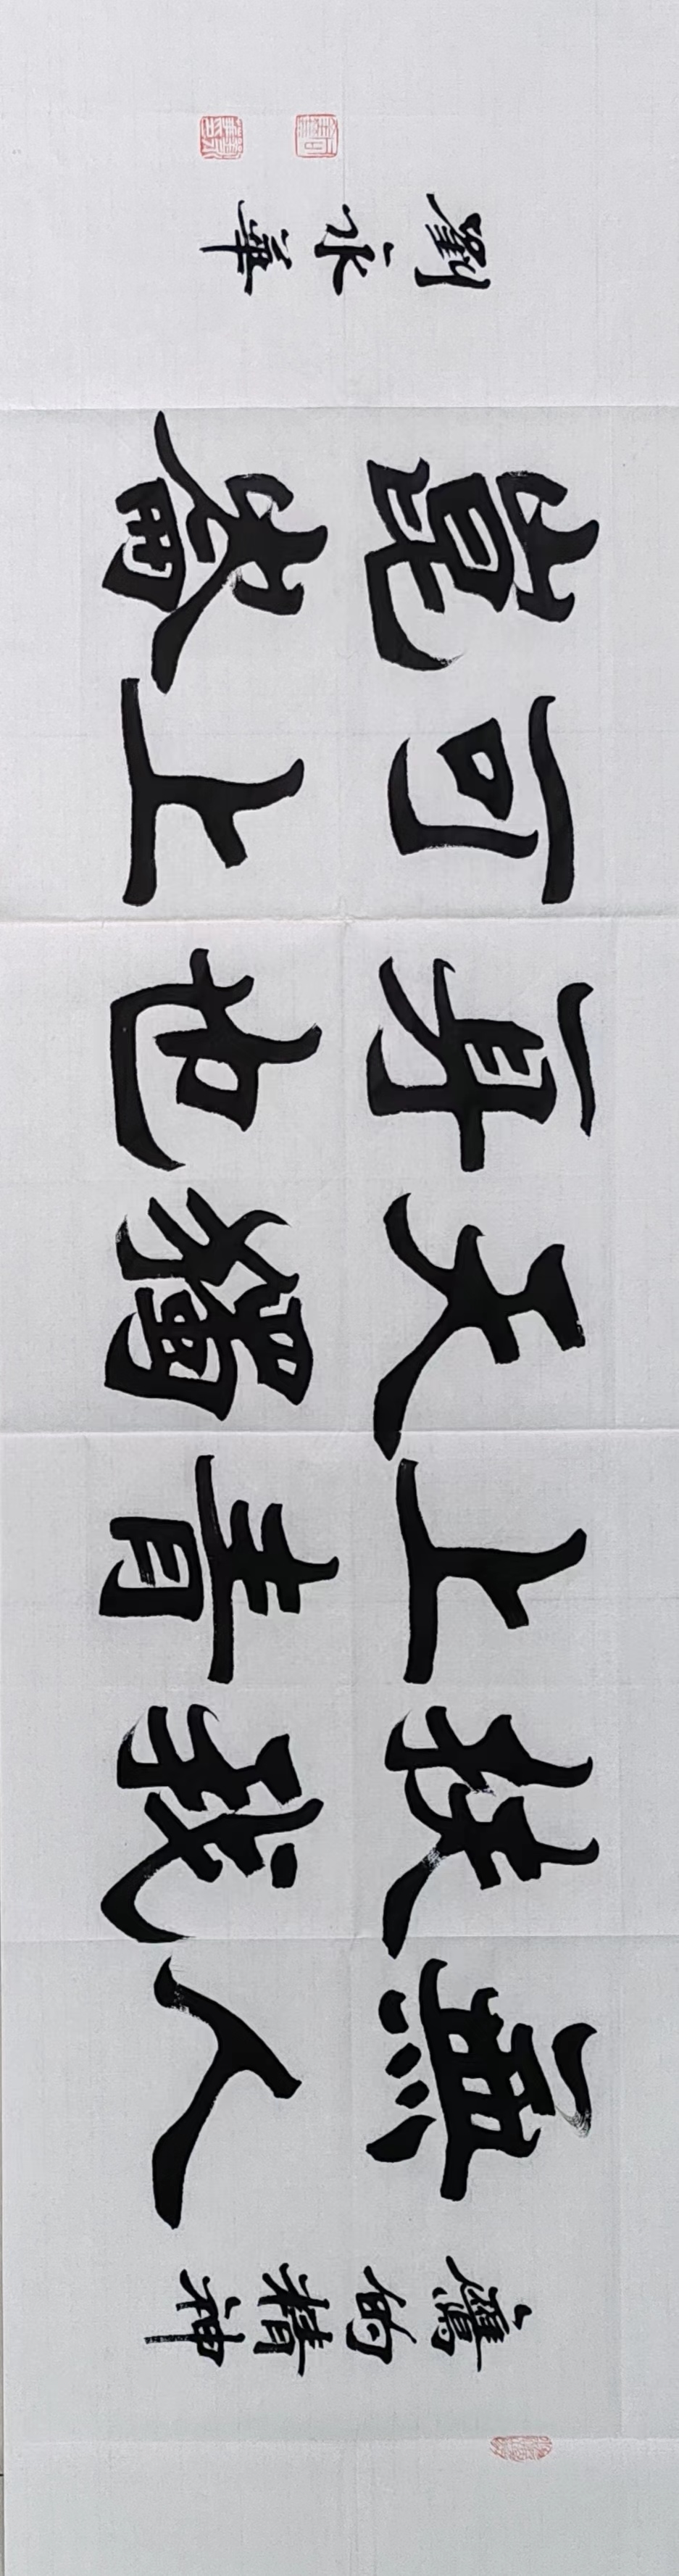 鷹的精神
無人
扶我
上青
天獨
身也
可上
崑崙
劉永華